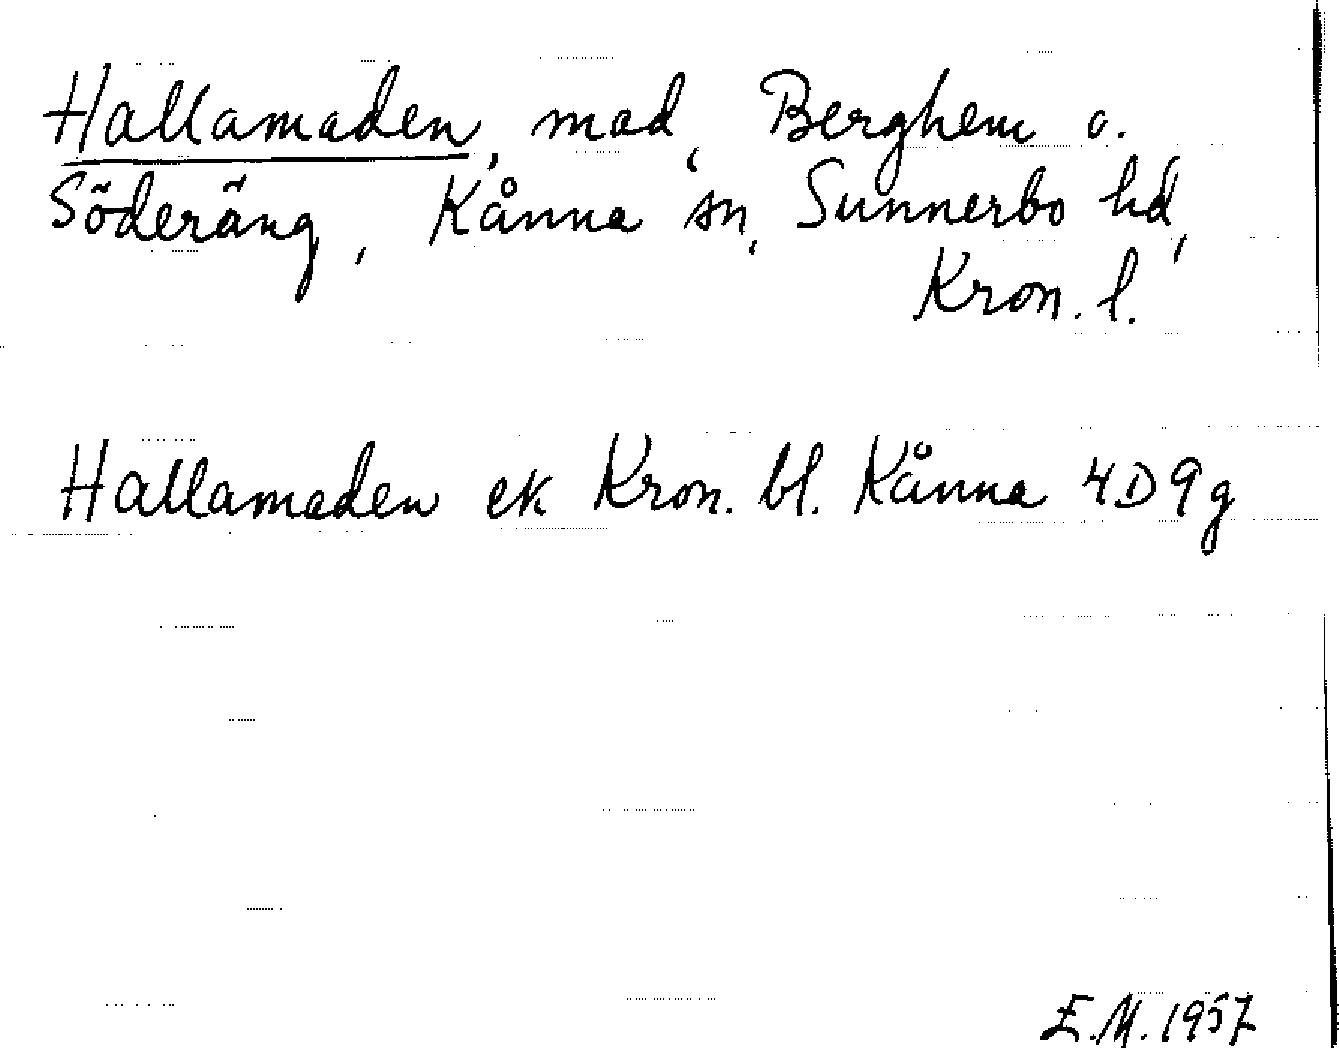 Hallamaden, mad, Berghem o.
Söderäng, Kånna sn, Sunnerbo hd,
Kron. l.
Hallamaden ek Kron. bl. Kånna 4D9g
E.M. 1957